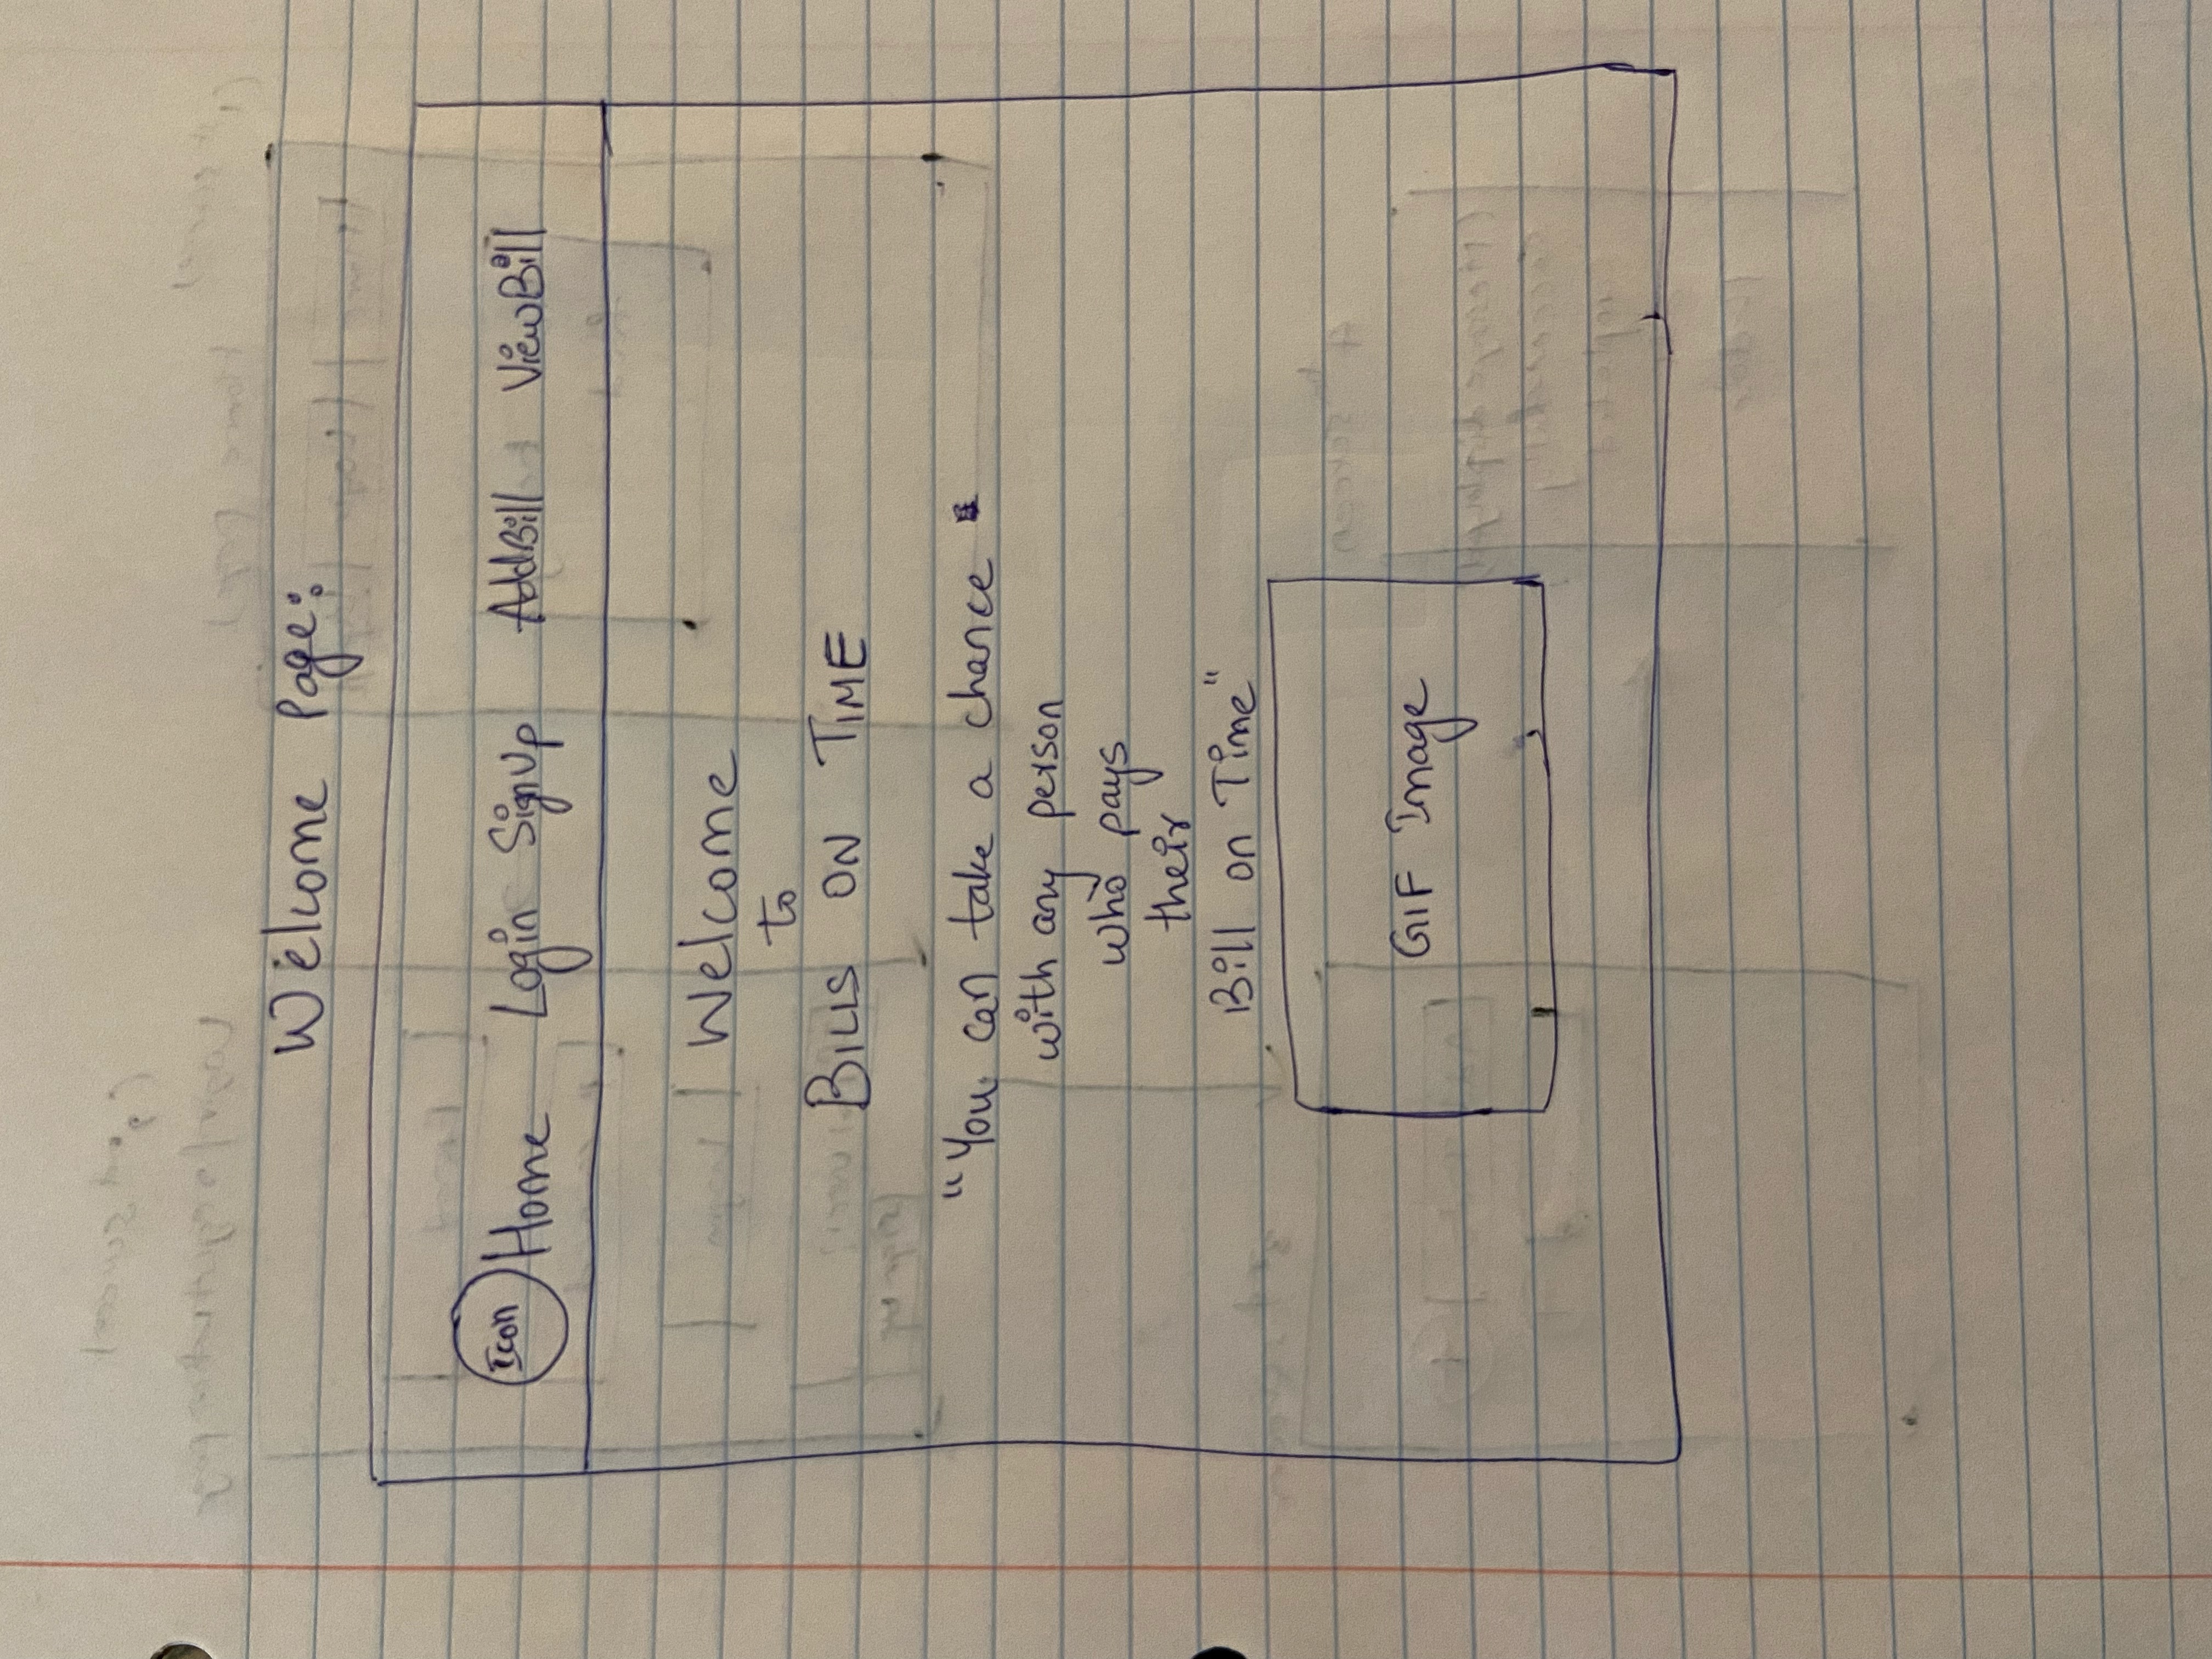 Welcome Page:
Icon Home Login SignUp AddBill ViewBill
Welcome
to
BILLS ON TIME
"You can take a chance
with any person
who pays
their
Bill on Time"
GIF Image